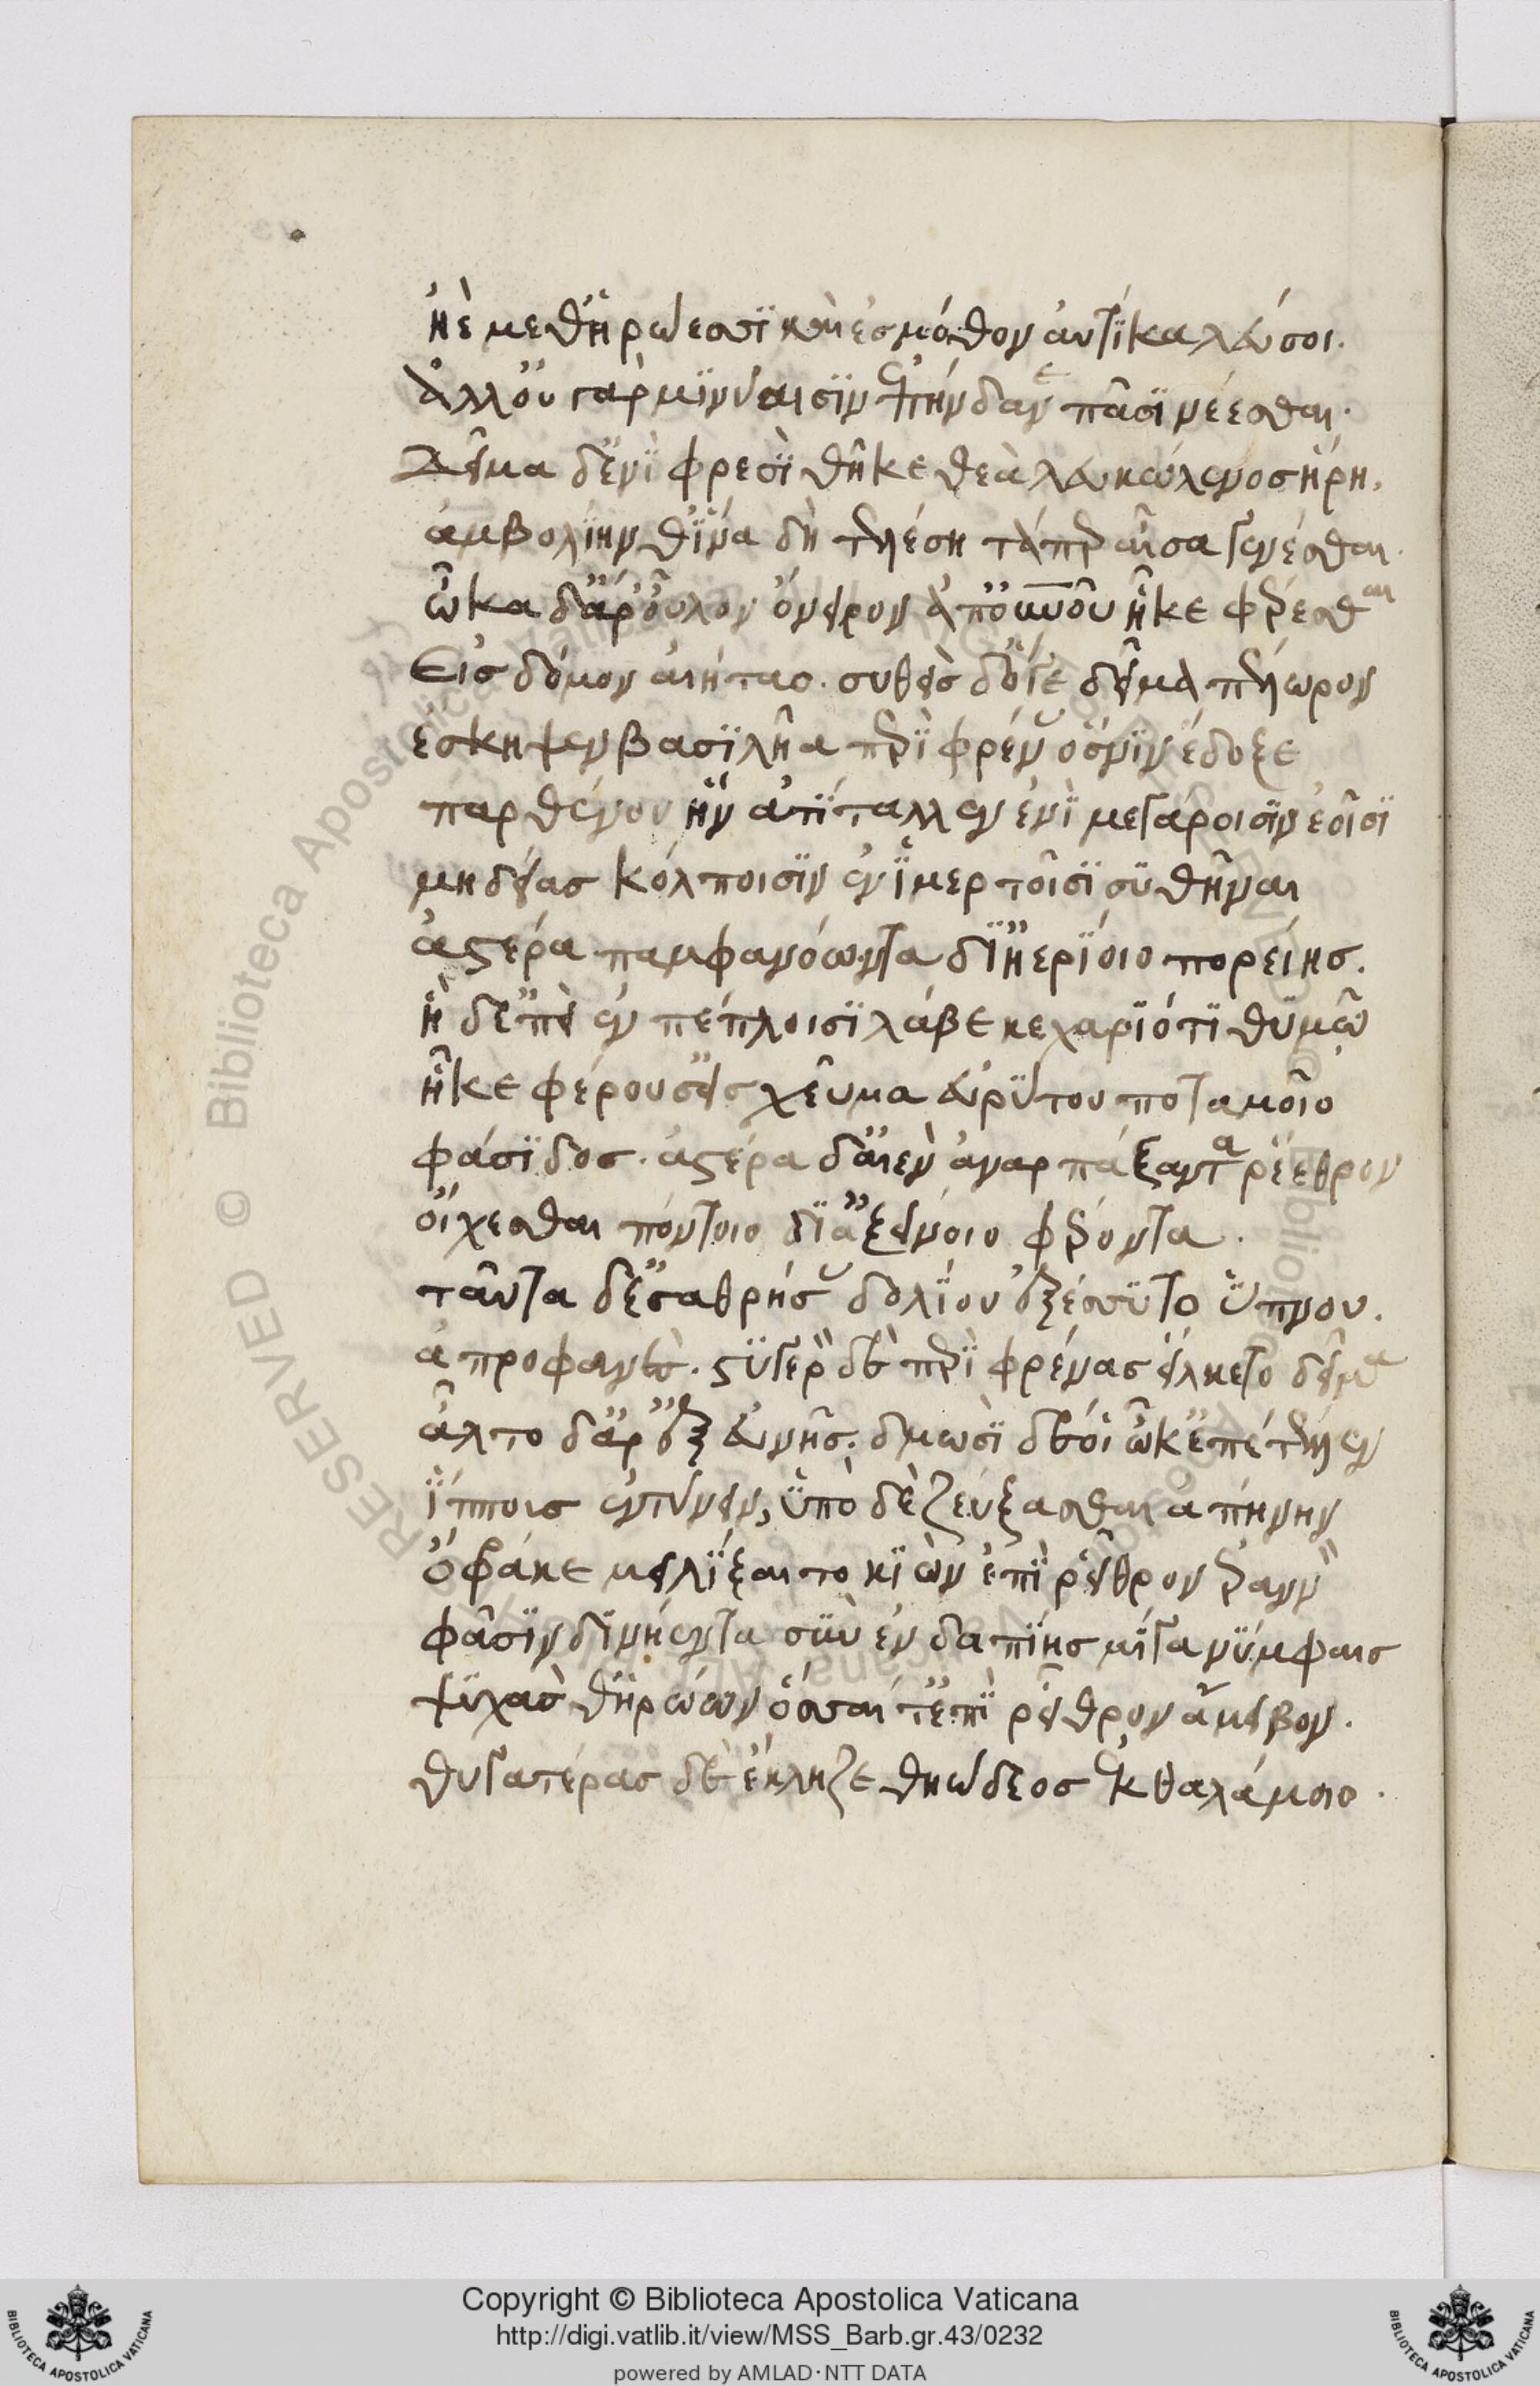 ἠὲ μεθ' ἡρώεσσι καὶ ἐς μόθον ἀντικαλέσσοι.
ἄλλου γὰρ μιν ἔαισιμ ἐπήνδανε πᾶσι νέεσθαι.
Δεῖμα δ' ἐνὶ φρεσὶ θῆκε θεὰ λευκώλενος ἥρη,
ἀμβολίην θ' ἵνα δὴ τελέση τάπερ αἶσα γενέσθαι.
ὦκα δ' ἄρ' οὖλον ὄνειρον ἀπ' οὐνοῦ ἧκε φέρεσθαι
Εἰς δόμον αἰήταο. συθεὶς δ' ὅγε δεῖμα πελωρον
ἔσκηψεν βασιλῆα περὶ φρένας ὅς μιν ἔδοξε
παρθένον ἣν ἀτίταλλεν ἐνὶ μεγάροισιν ἑοῖσι
μηδείας κόλποισιν ἐν ἱμερτοῖσι συθῆναι
ἀστέρα παμφανόωντα δι' ἠερίοιο πορείης.
ἡ δ' ἐπεὶ ἐν πέπλοισι λάβε κεχαριότι θυμῶ
ἧκε φέρουσ' εἰς χεῦμα εὐρύτου ποταμοῖο
φάσιδος. ἀστέρα δ' αἰὲν ἀναρπάξαντα ῥέεθρον
οἴχεσθαι πόντοιο δι' ἀξείνοιο φέροντα.
ταῦτα δ' ἐσαθρήσας δολίου ἐξέσσυτο ὕπνου.
ἀπροφαντὸς. στυγερὸν δὲ περὶ φρένας εἵλκετο δεῖμα
ἆλτο δ' ἄρ' ἐξ εὐνῆς. δμωσὶ δέ οἱ ὦκ' ἐπέτελλεν
ἵπποις ἐντύνειν, ὑπὸ δὲ ζεύξασθαι ἀπήνην
ὄφρα κε μειλίξαιτο κιὼν ἐπὶ ῥεῖθρον ἐραννὸν
φᾶσιν δινήεντα σὺν ἐνδαπίης μίγα νύμφαις
ψυχὰς θ' ἡρώων ὅσσαι τ' ἐπὶ ῥεῖθρον ἄμειβον.
θυγατέρας δὲ ἔκληζε θηώδεος ἐκ θαλάμοιο.
Copyright © Biblioteca Apostolica Vaticana
http://digi.vatlib.it/view/MSS_Barb.gr.43/0232
powered by AMLAD·NTT DATA